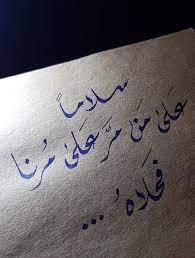 سلاماً
عَلىٰ مَن مرَّ عَلىٰ مُرنا
فحَلاهُ ...